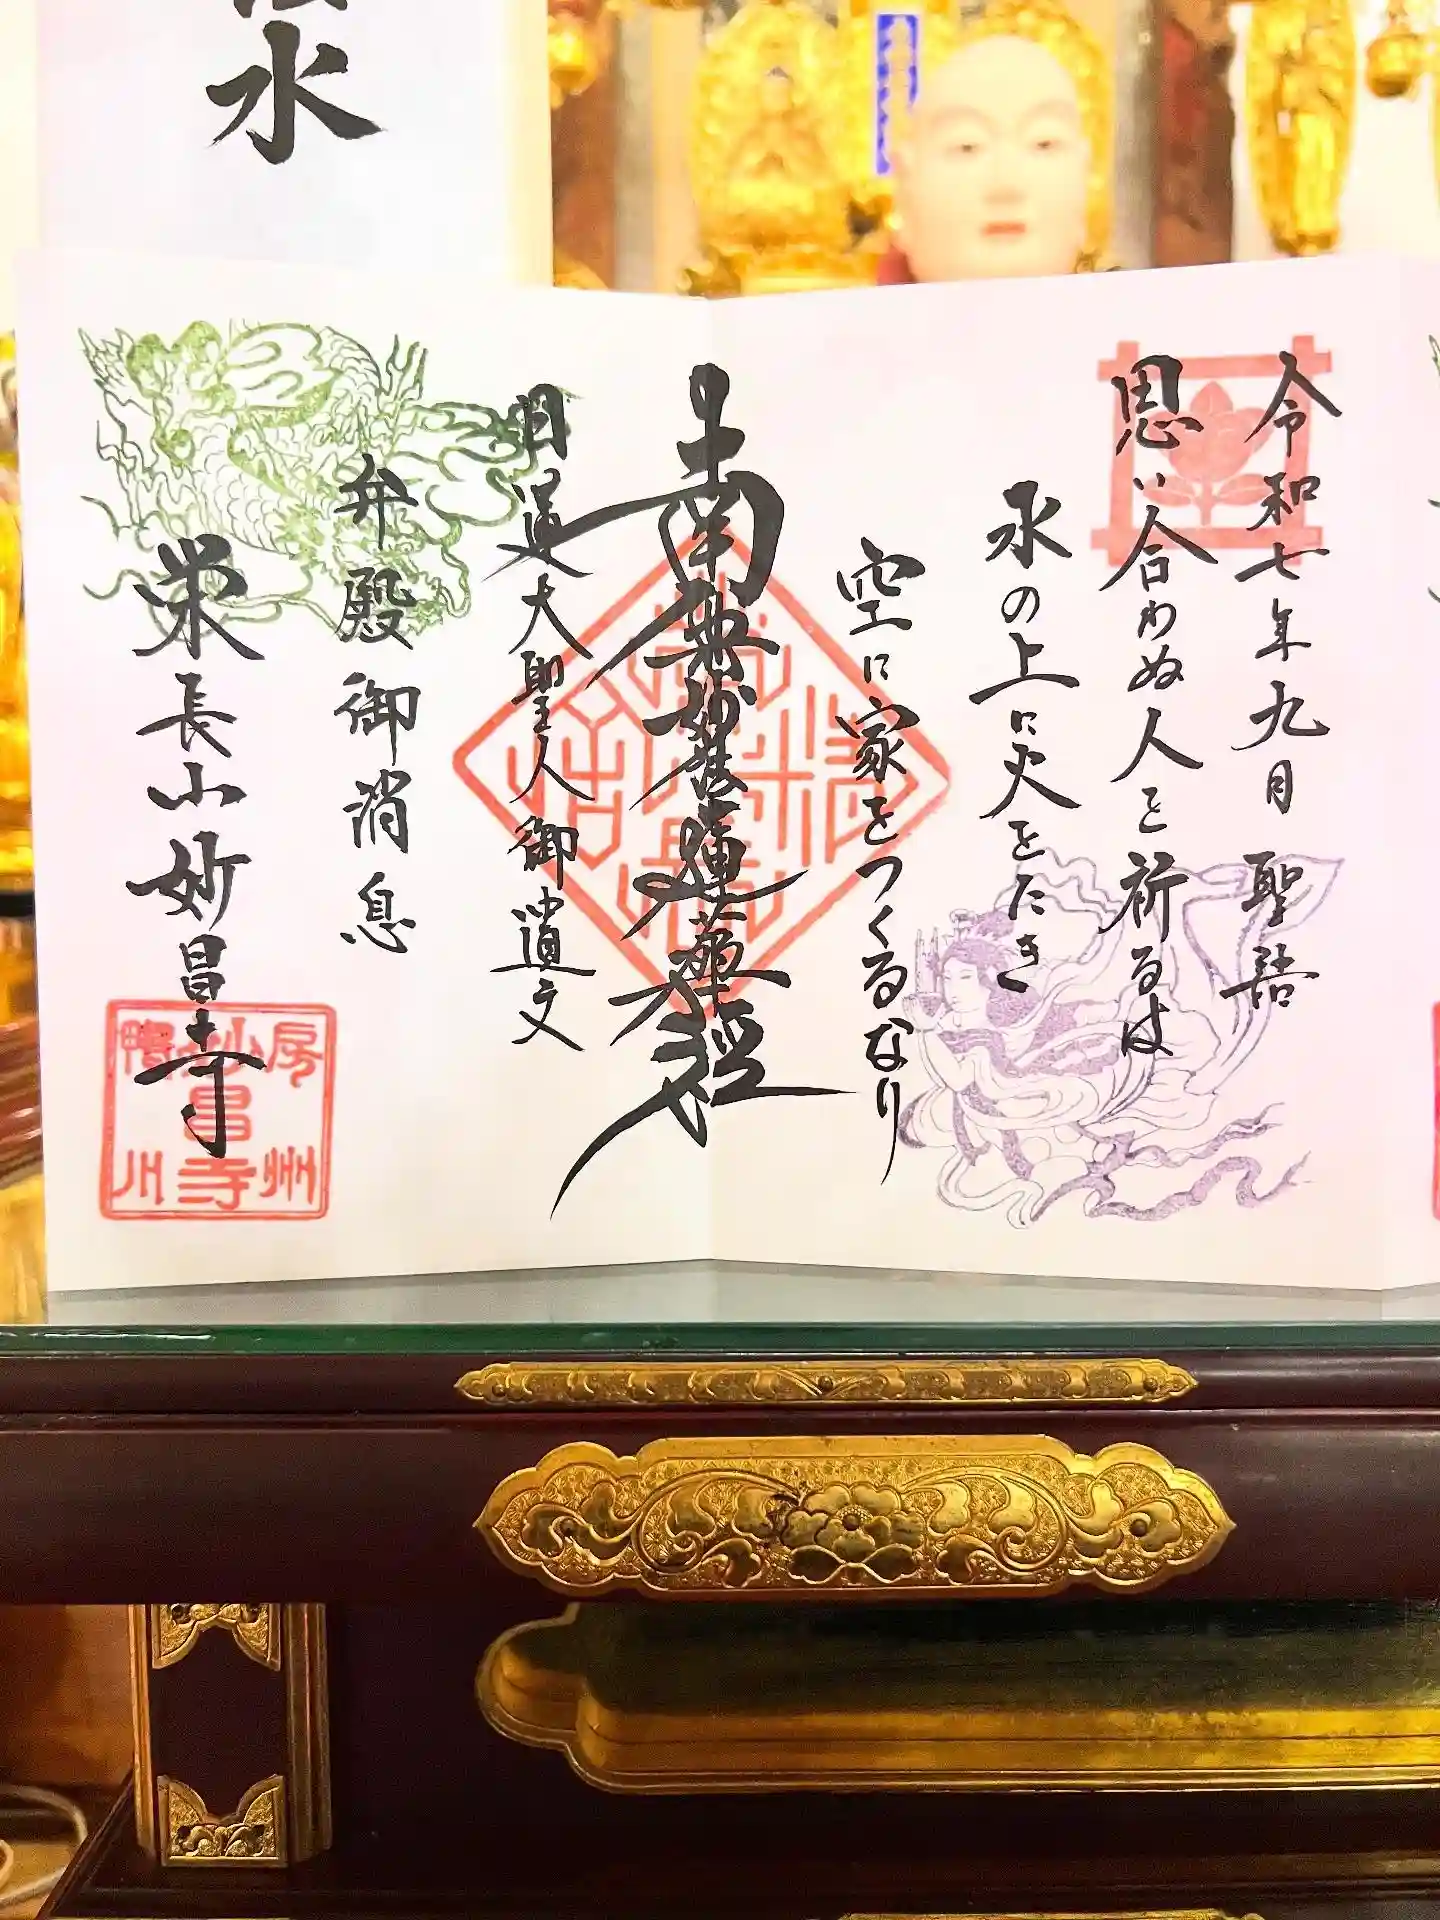 令和七年九月 聖語
思い合わぬ人を祈るは
水の上に火をたき
空に家をつくるなり
南無妙法蓮華経
日蓮大聖人御遺文
弁殿御消息
栄長山妙昌寺
房州
妙昌寺
鴨川
水